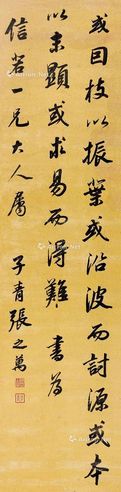 或因枝以振葉或沿波而討源或本
以末顯或求易而得難 書為
信若一兄大人屬
子青張之萬